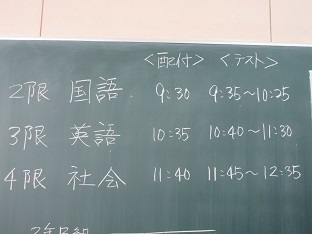 <配付> <テスト>
2限 国語 9:30 9:35~10:25
3限 英語 10:35 10:40~11:30
4限 社会 11:40 11:45~12:35